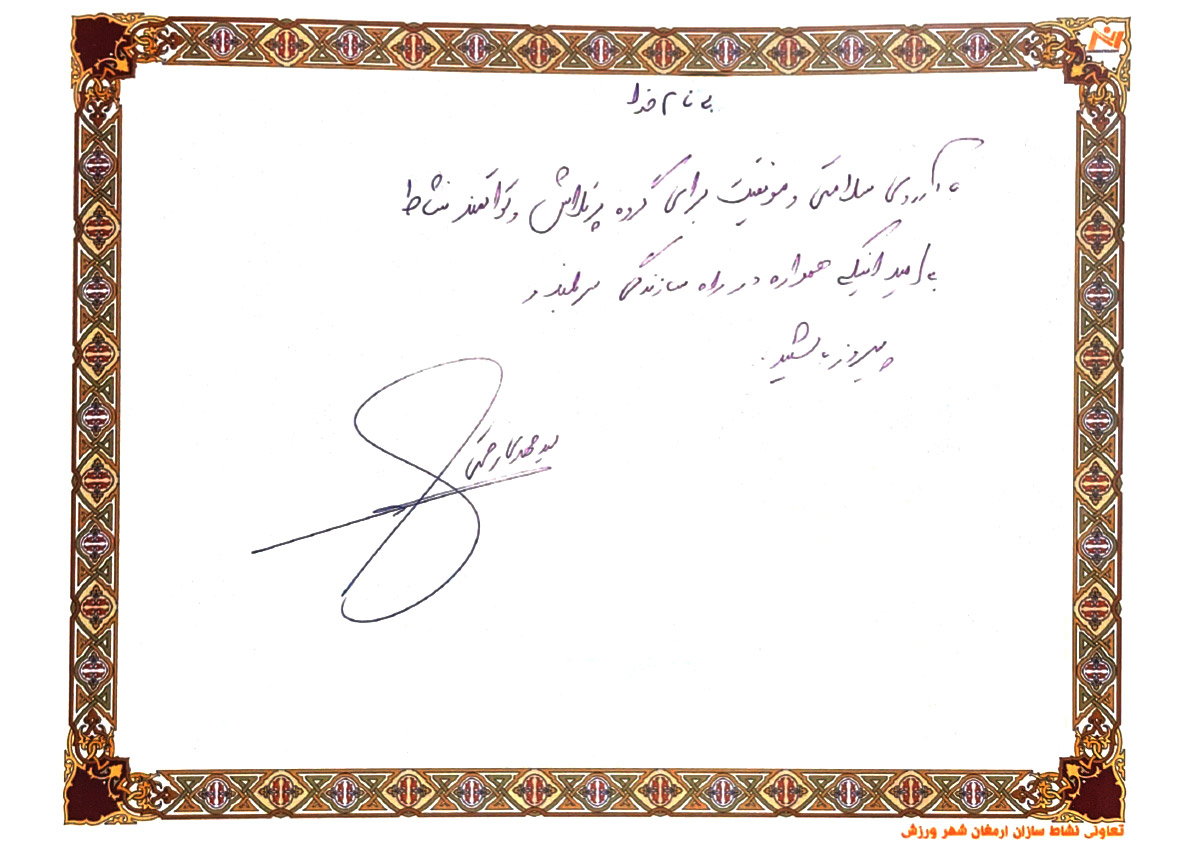 به نام خدا
با آرزوی سلامتی و موفقیت برای گروه پرتلاش و توانمند نشاط
به امید اینکه همواره در راه سازندگی سربلند و
پیروز باشید.
سید مهدی رحمتی
تعاونی نشاط سازان ارمغان شهر ورزش